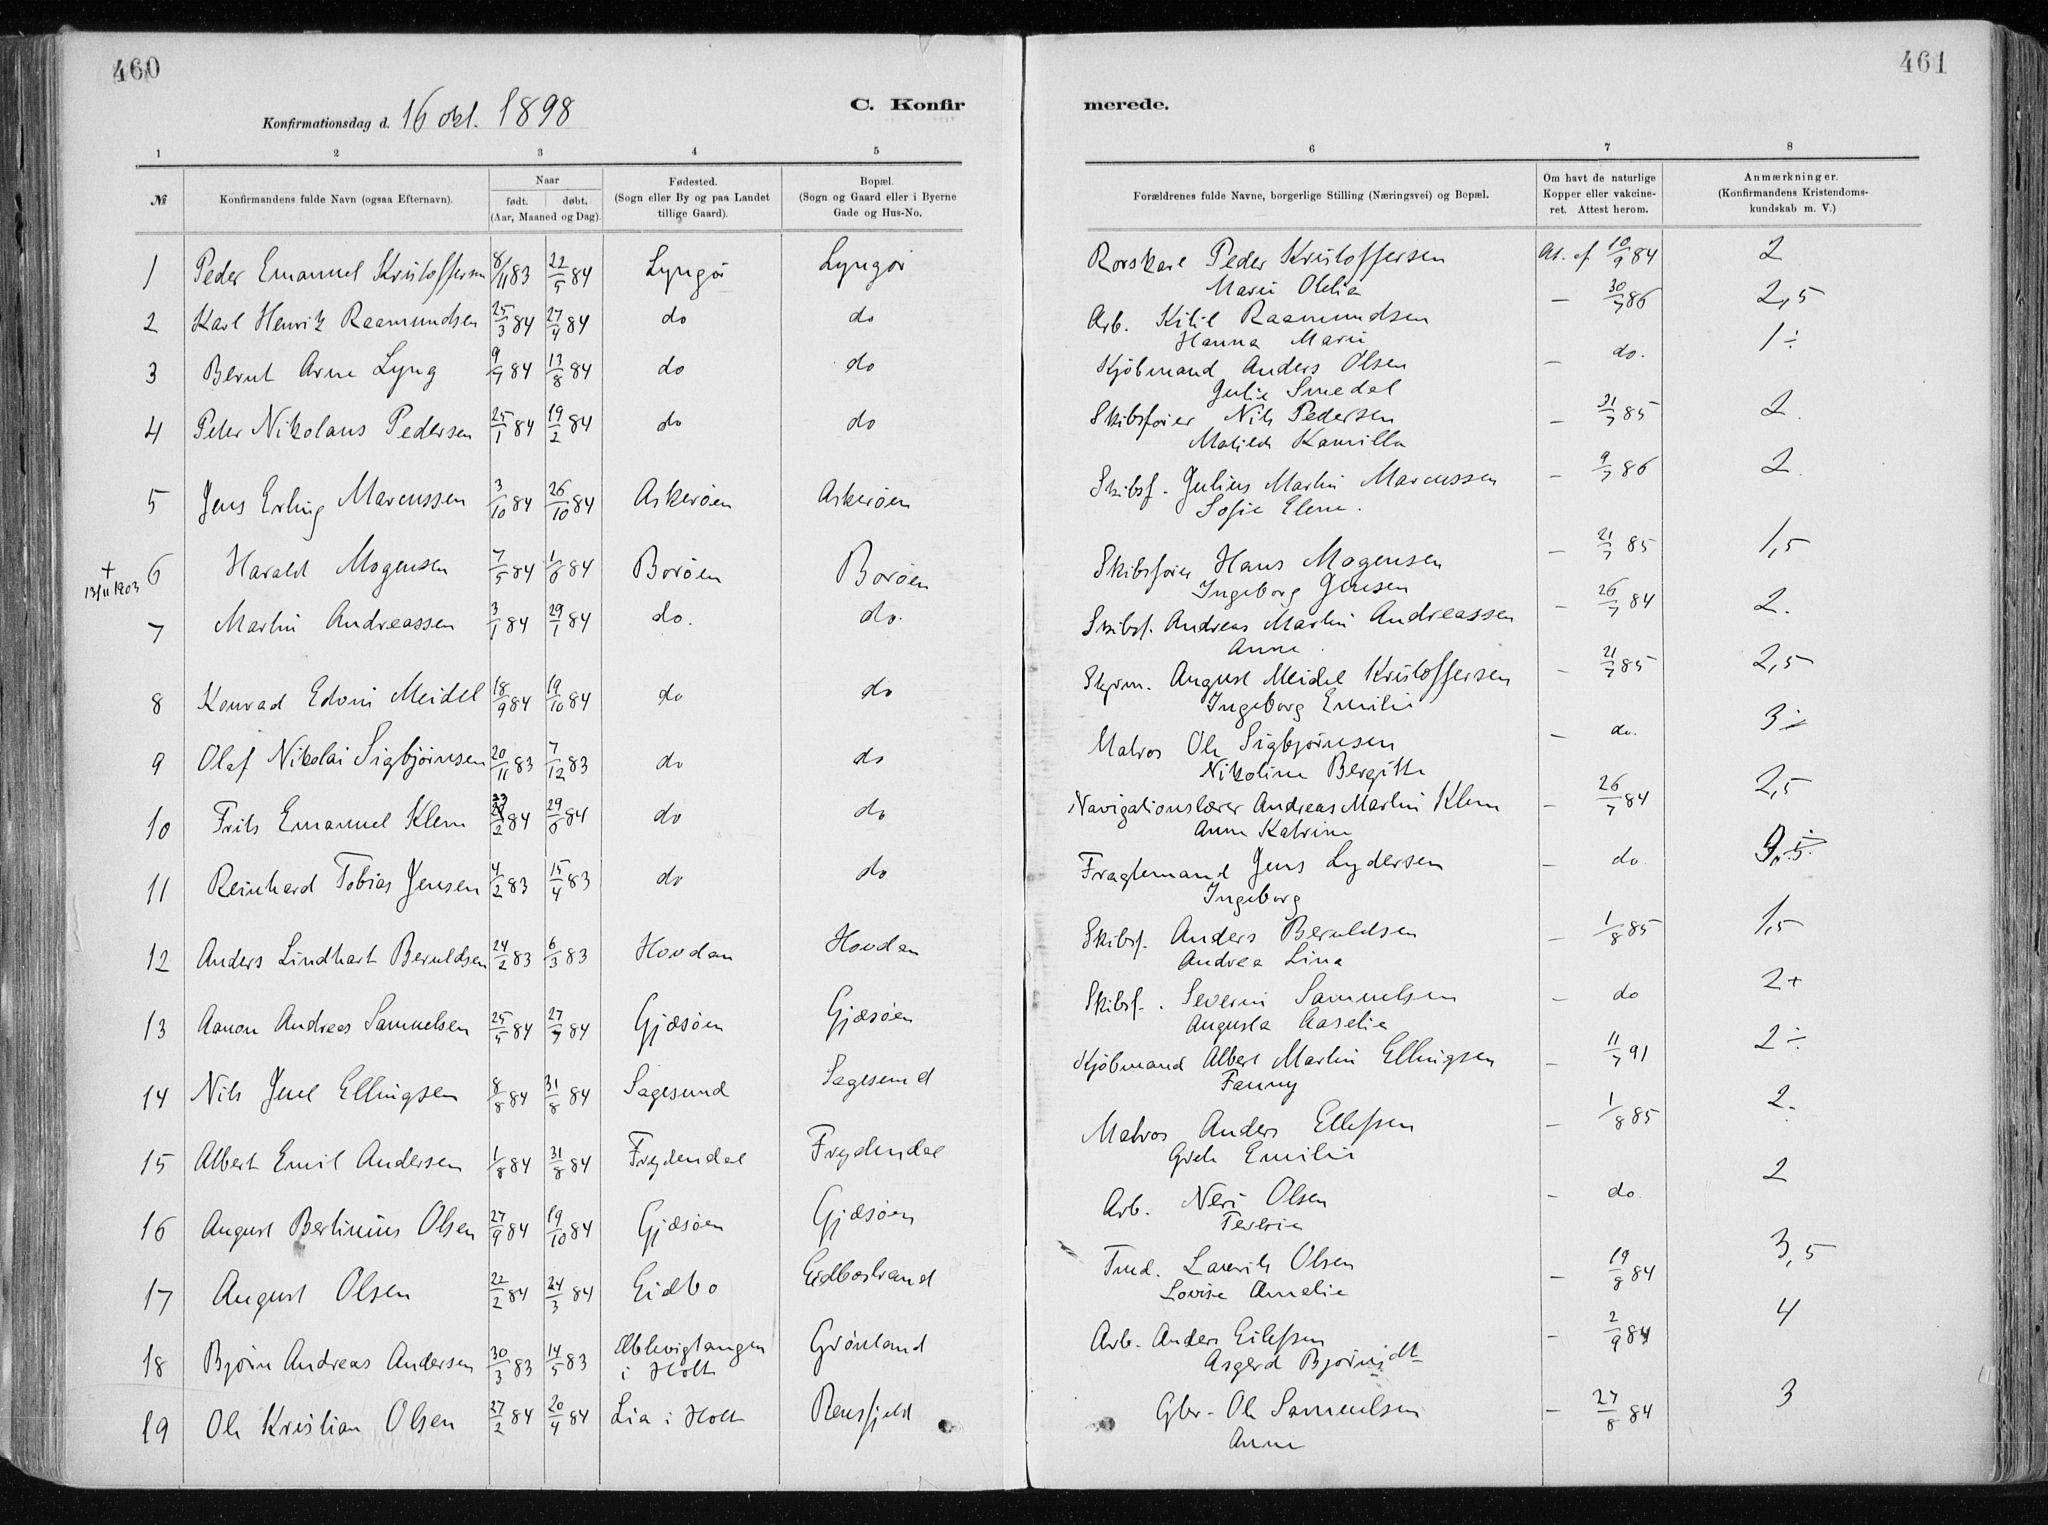 460
461
Konfirmationsdag d. 16 okt. 1898
C. Konfir
merede.
1 2 3 4 5 6 7 8
№ Konfirmandens fulde Navn (ogsaa Efternavn). Naar født. døbt. (Aar, Maaned og Dag). Fødested. (Sogn eller By og paa Landet tillige Gaard). Bopæl. (Sogn og Gaard eller i Byerne Gade og Hus-No. Forældrenes fulde Navne, borgerlige Stilling (Næringsvei) og Bopæl. Om havt de naturlige Kopper eller vakcineret. Attest herom. Anmærkninger. (Konfirmandens Kristendomskundskab m. V.)
1 Peder Emanuel Kristoffersen 8/11 83 22/5 84 Lyngør Lyngør Rorskarl Peder Kristoffersen At. af 10/9 84 2
Marie Olelia
2 Karl Henrik Raamundsen 25/3 84 27/4 84 do do Arb. Kitil Raamundsen – 30/7 86 2,5
Hanna Marie
3 Bernt Arne Lyng 9/7 84 13/8 84 do do Kjøbmand Anders Olsen – do. 1÷
Julie Smedal
4 Peter Nikolaus Pedersen 25/1 84 19/2 84 do do Skibsfører Nils Pedersen – 21/7 85 2.
Matilde Kamilla
5 Jens Erling Marcussen 3/10 84 26/10 84 Askerøen Askerøen Skibsf. Julius Martin Marcussen – 9/7 86 2.
Sofie Elene.
+ 13/11 1903 6 Harald Mogensen 7/5 84 1/6 84 Borøen Borøen Skibsfører Hans Mogensen – 21/7 85 1,5
Ingeborg Jensen
7 Martin Andreassen 3/1 84 29/1 84 do. do. Skibsf. Andreas Martin Andreassen – 26/7 84 2.
Anne
8 Konrad Edvin Meidel 18/9 84 19/10 84 do do Styrm. August Meidel Kristoffersen – 21/7 85 2,5
Ingeborg Emilie
9 Olaf Nikolai Sigbjørnsen 20/11 83 7/12 83 do do Matros Ole Sigbjørnsen – do. 3÷
Nikoline Bergitte
10 Frits Emanuel Klem 23/2 84 29/6 84 do do Navigationslærer Andreas Martin Klem – 26/7 84 2,5
Anne Katrine
11 Reinhard Tobias Jensen 4/2 83 15/4 83 do do Fragtemand Jens Lydersen – do.
Ingeborg
12 Anders Lindhart Beruldsen 24/2 83 6/3 83 Hovdan Hovden Skibsf. Anders Beruldsen – 1/8 85 1,5
Andrea Lina
13 Aanon Andreas Samuelsen 25/5 84 27/7 84 Gjæsøen Gjæsøen Skibsf. Severin Samuelsen – do 2+
Augusta Aaselie
14 Nils Juel Ellingsen 8/8 84 31/8 84 Sagesund Sagesund Kjøbmand Albert Martin Ellingsen – 11/7 91 2÷
Fanny
15 Albert Emil Andersen 1/8 84 31/8 84 Frydendal Frydendal Matros Anders Ellefsen – 1/8 85 2.
Grete Emilie
16 August Bertinius Olsen 27/9 84 19/10 84 Gjæsøen Gjæsøen Arb. Neri Olsen – do. 2
Teresie
17 August Olsen 22/2 84 24/3 84 Eidbo Eidbostrand Tmd. Laurits Olsen – 19/8 84 3,5
Lovise Amelie
18 Bjørn Andreas Andersen 30/3 83 14/5 83 Æblevigtangen i Holt Grønland Arb. Anders Eilefsen – 2/9 84 4
Asgerd Bjørnsdt
19 Ole Kristian Olsen 27/2 84 20/4 84 Lia i Holt Rensfjeld Gbr. Ole Samuelsen – 27/8 84 3
Anne